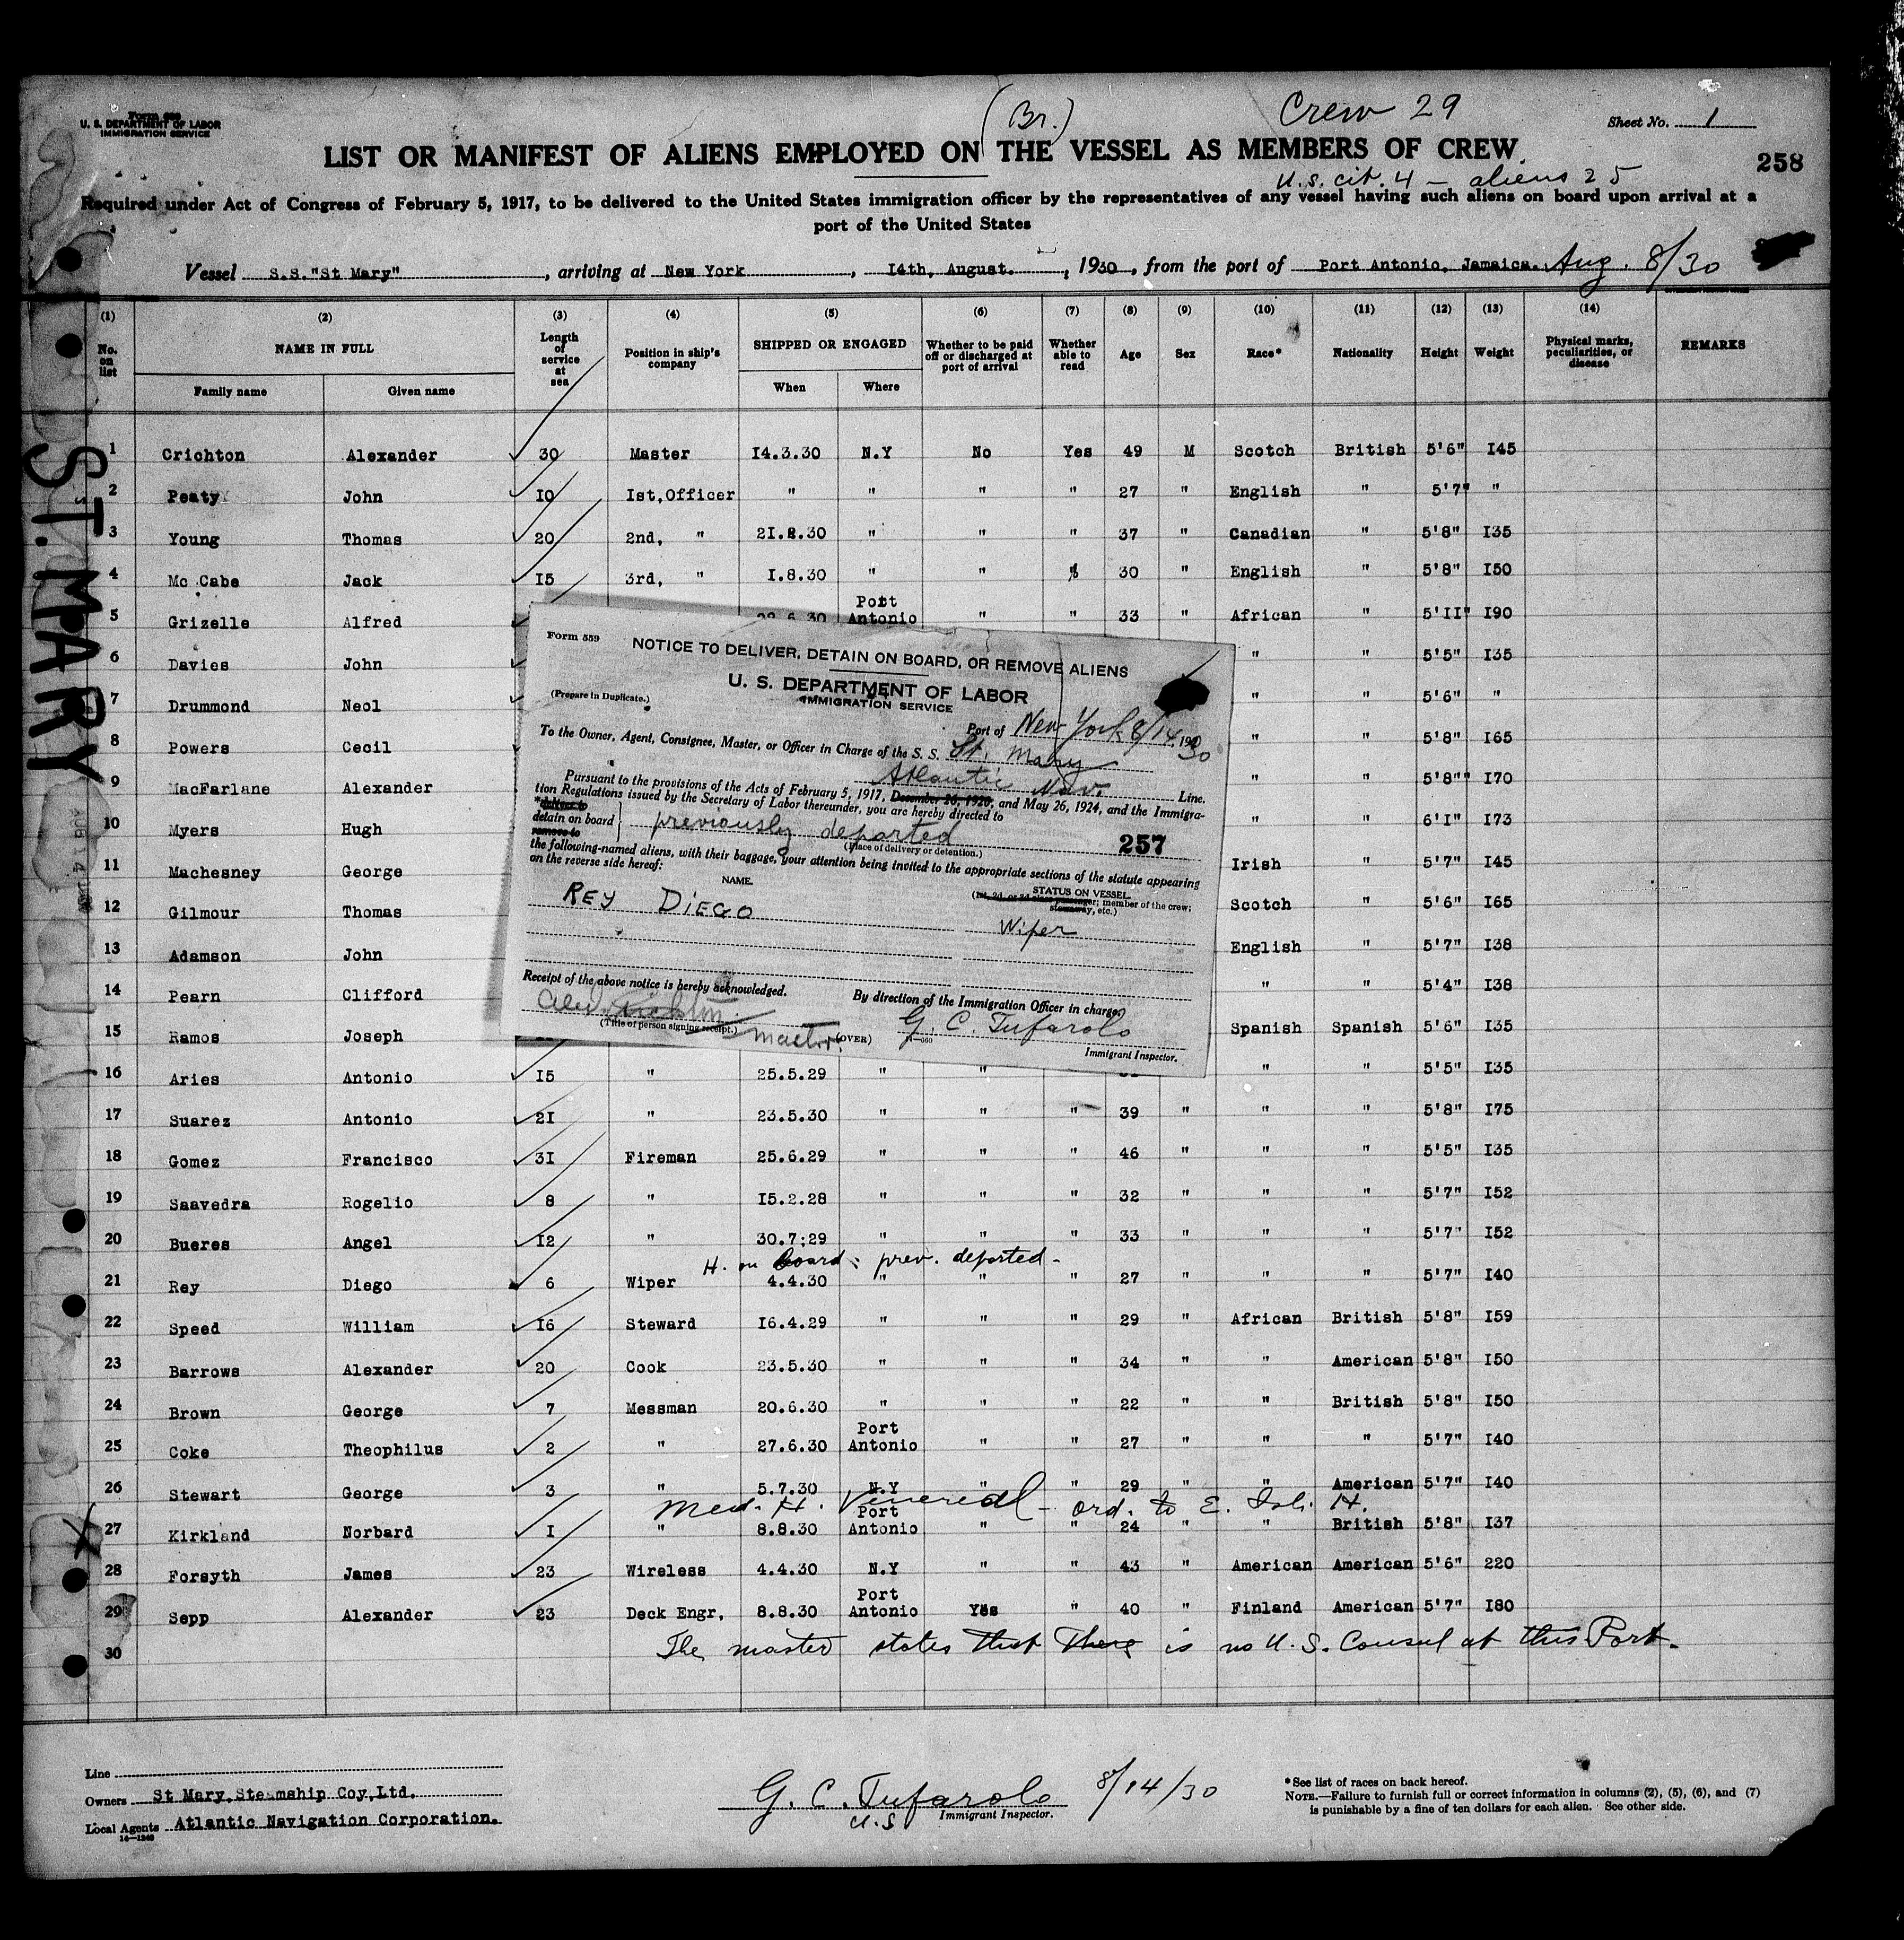 (Br.) Crew 29
Form 689
U. S. DEPARTMENT OF LABOR
IMMIGRATION SERVICE
Sheet No. 1
LIST OR MANIFEST OF ALIENS EMPLOYED ON THE VESSEL AS MEMBERS OF CREW
258
U.S. cit. 4 - aliens 25
Required under Act of Congress of February 5, 1917, to be delivered to the United States immigration officer by the representatives of any vessel having such aliens on board upon arrival at a
port of the United States
Vessel S.S."St Mary", arriving at New York, 14th, August., 1930, from the port of Port Antonio, Jamaica. Aug. 8/30
(1) (2) (3) (4) (5) (6) (7) (8) (9) (10) (11) (12) (13) (14)
No. on list NAME IN FULL Length of service at sea Position in ship's company SHIPPED OR ENGAGED Whether to be paid off or discharged at port of arrival Whether able to read Age Sex Race* Nationality Height Weight Physical marks, peculiarities, or disease REMARKS
Family name Given name When Where
1 Crichton Alexander 30 Master 14.3.30 N.Y No Yes 49 M Scotch British 5'6" I45
2 Peaty John I0 Ist,Officer " " " " 27 " English " 5'7" "
3 Young Thomas 20 2nd, " 2I.2.30 " " " 37 " Canadian " 5'8" I35
4 Mc Cabe Jack I5 3rd, " I.8.30 " " " 30 " English " 5'8" I50
5 Grizelle Alfred Port Antonio " " 33 " African " 5'II" I90
6 Davies John " " 5'5" I35
7 Drummond Neol " " 5'6" "
8 Powers Cecil " " 5'8" I65
9 MacFarlane Alexander " " 5'8"" I70
10 Myers Hugh " " 6'I" I73
11 Machesney George Irish " 5'7" I45
12 Gilmour Thomas Scotch " 5'6" I65
13 Adamson John English " 5'7" I38
14 Pearn Clifford " " 5'4" I38
15 Ramos Joseph Spanish Spanish 5'6" I35
16 Aries Antonio I5 " 25.5.29 " " " " 5'5" I35
17 Suarez Antonio 2I " 23.5.30 " " " 39 " " " 5'8" I75
18 Gomez Francisco 3I Fireman 25.6.29 " " " 46 " " " 5'5" I35
19 Saavedra Rogelio 8 " I5.2.28 " " " 32 " " " 5'7" I52
20 Bueres Angel I2 " 30.7;29 " " " 33 " " " 5'7" I52
H. on board: prev. deported -
21 Rey Diego 6 Wiper 4.4.30 " " " 27 " " " 5'7" I40
22 Speed William I6 Steward I6.4.29 " " " 29 " African British 5'8" I59
23 Barrows Alexander 20 Cook 23.5.30 " " " 34 " " American 5'8" I50
24 Brown George 7 Messman 20.6.30 " " " 22 " " British 5'8" I50
25 Coke Theophilus 2 " 27.6.30 Port Antonio " " 27 " " " 5'7" I40
26 Stewart George 3 " 5.7.30 N.Y " " 29 " " American 5'7" I40
Med. H. Venereal - ord. to E. Isl. H.
27 Kirkland Norbard I " 8.8.30 Port Antonio " " 24 " " British 5'8" I37
28 Forsyth James 23 Wireless 4.4.30 N.Y " " 43 " American American 5'6" 220
29 Sepp Alexander 23 Deck Engr, 8.8.30 Port Antonio Yes " 40 " Finland American 5'7" I80
30 The master states that there is no U.S. Consul at this Port.
ST. MARY
AUG 14 1930
Form 559
NOTICE TO DELIVER, DETAIN ON BOARD, OR REMOVE ALIENS
U. S. DEPARTMENT OF LABOR
IMMIGRATION SERVICE
(Prepare in Duplicate.)
Port of New York 8/14, 1930
To the Owner, Agent, Consignee, Master, or Officer in Charge of the S. S. St. Mary
Atlantic Nav. Line.
Pursuant to the provisions of the Acts of February 5, 1917, December 26, 1920, and May 26, 1924, and the Immigra-
tion Regulations issued by the Secretary of Labor thereunder, you are hereby directed to
*deliver to
detain on board previously deported
remove to
(Place of delivery or detention.)
257
the following-named aliens, with their baggage, your attention being invited to the appropriate sections of the statute appearing
on the reverse side hereof:
NAME. STATUS ON VESSEL.
(1st, 2d, or 3d class passenger; member of the crew; stowaway, etc.)
REY DIEGO Wiper
Receipt of the above notice is hereby acknowledged.
By direction of the Immigration Officer in charge,
Alex. Crichton
(Title of person signing receipt.) Master. (OVER)
G. C. Tufarolo
Immigrant Inspector.
Line
Owners St Mary Steamship Coy,Ltd.
Local Agents Atlantic Navigation Corporation.
14—1240
G. C. Tufarolo 8/14/30
U.S Immigrant Inspector.
*See list of races on back hereof.
NOTE.—Failure to furnish full or correct information in columns (2), (5), (6), and (7)
is punishable by a fine of ten dollars for each alien. See other side.